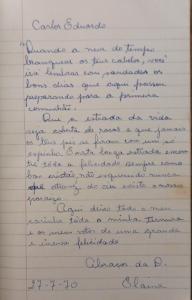 Carlos Eduardo
Quando a neve do tempo
branquear os teus cabelos, você
irá lembrar com saudades os
bons dias que aqui passou
preparando para a primeira
comunhão.
Que a estrada da vida
seja coberta de rosas e que jamais
os teus pés se firam com um só
espinho. E nesta longa estrada encon
tre toda a felicidade sempre como
bom cristão, não esquecendo nunca
que através do céu existe
Aqui deixo todo o meu
carinho toda a minha ternura
e os meus votos de uma grande
e imensa felicidade
Abraços da D.
27-7-70 Elaine